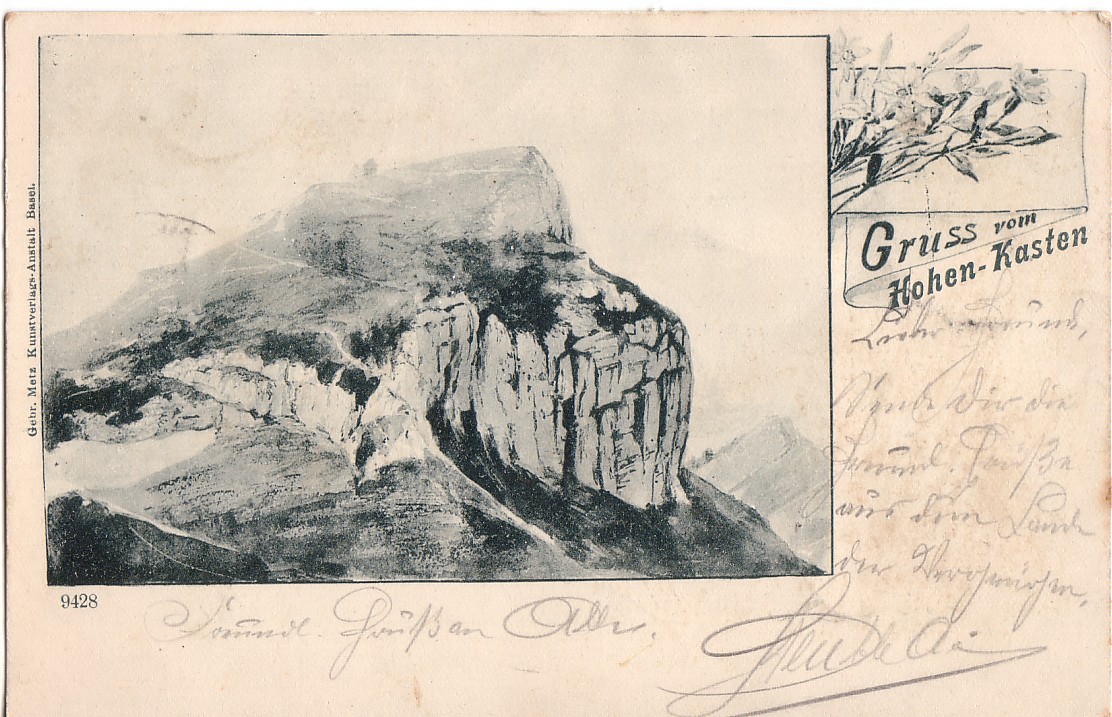 Gebr. Metz Kunstverlags-Anstalt Basel.
Gruss vom
Hohen-Kasten
Lieber Freund,
Sende Dir die
freundl. Grüße
aus dem Lande
der
9428
Freundl. Gruß an Alle.